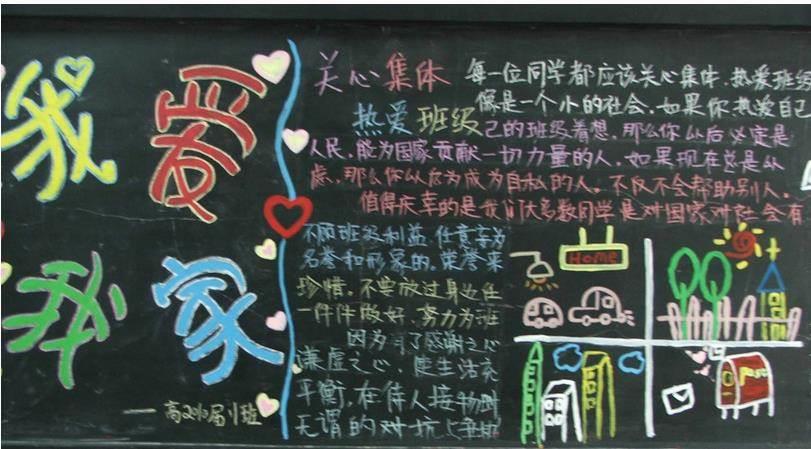 我爱
我家
一 高2010届11班
关心集体
热爱班级
每一位同学都应该关心集体,热爱班级
像是一个小的社会,如果你热爱自己
己的班级着想,那么你以后必定是
人民,能为国家贡献一切力量的人,如果现在总是从
虑,那么你以后为成为自私的人。不仅不会帮助别人。
值得庆幸的是我们大多数同学是对国家对社会有
不顾班级利益,任意妄为
名誉和形象的,荣誉来
珍惜,不要放过身边任
一件件做好,努力为班
因为有了感谢之心
谦虚之心,使生活充
平衡,在待人接物时
无谓的对抗上
Home